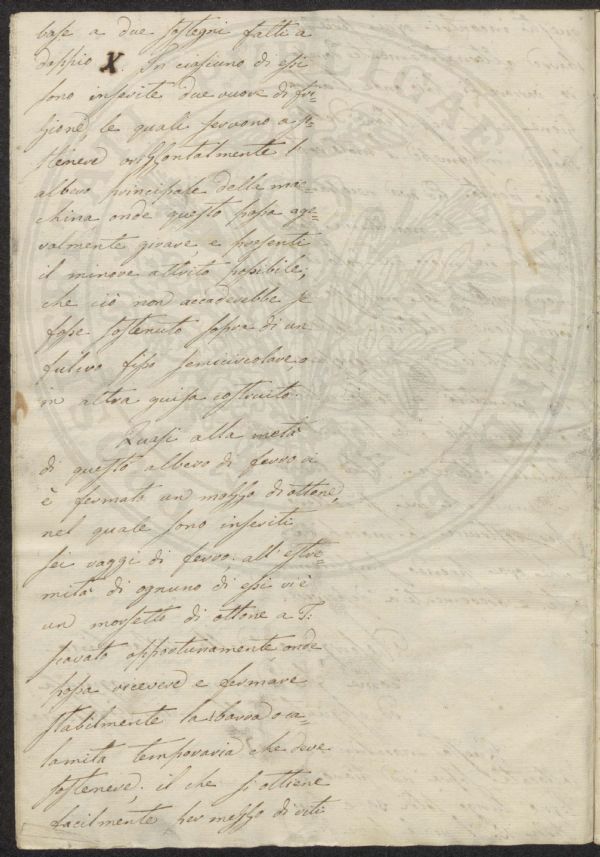 base a due sostegni fatti a
doppio X. In ciascuno di essi
sono inserite due ruore di fri=
zione, le quali servono a so=
stenere orizzontalmente l'
albero principale della mac=
china onde questo possa age=
valmente girare, e presenti
il minore attrito possibile;
che ciò non accaderebbe se
fosse sostenuto sopra di un
fulcro fisso semicircolare, o
in altra guisa costruito.
Quasi alla metà
di questo albero di ferro vi
è fermato un mozzo di ottone,
nel quale sono inseriti
sei raggi di ferro; all' estre=
mità di ognuno di essi vi è
un morsetto di ottone a T:
scavato opportunamente onde
possa ricevere e fermare
stabilmente la barra o ca=
lamita temporaria che deve
sostenere; il che si ottiene
facilmente per mezzo di viti